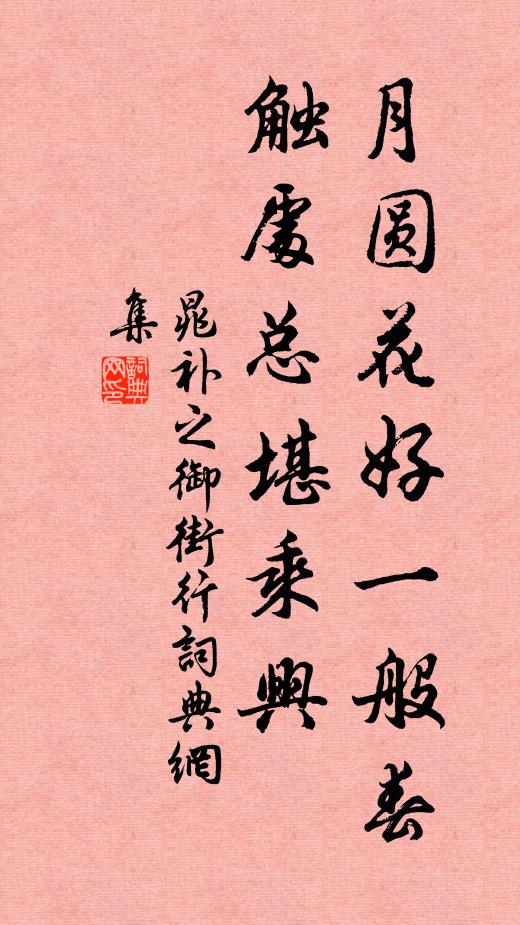 月圆花好一般春
触處总堪乘興
晁补之御街行詞典網
集
詞典
网印